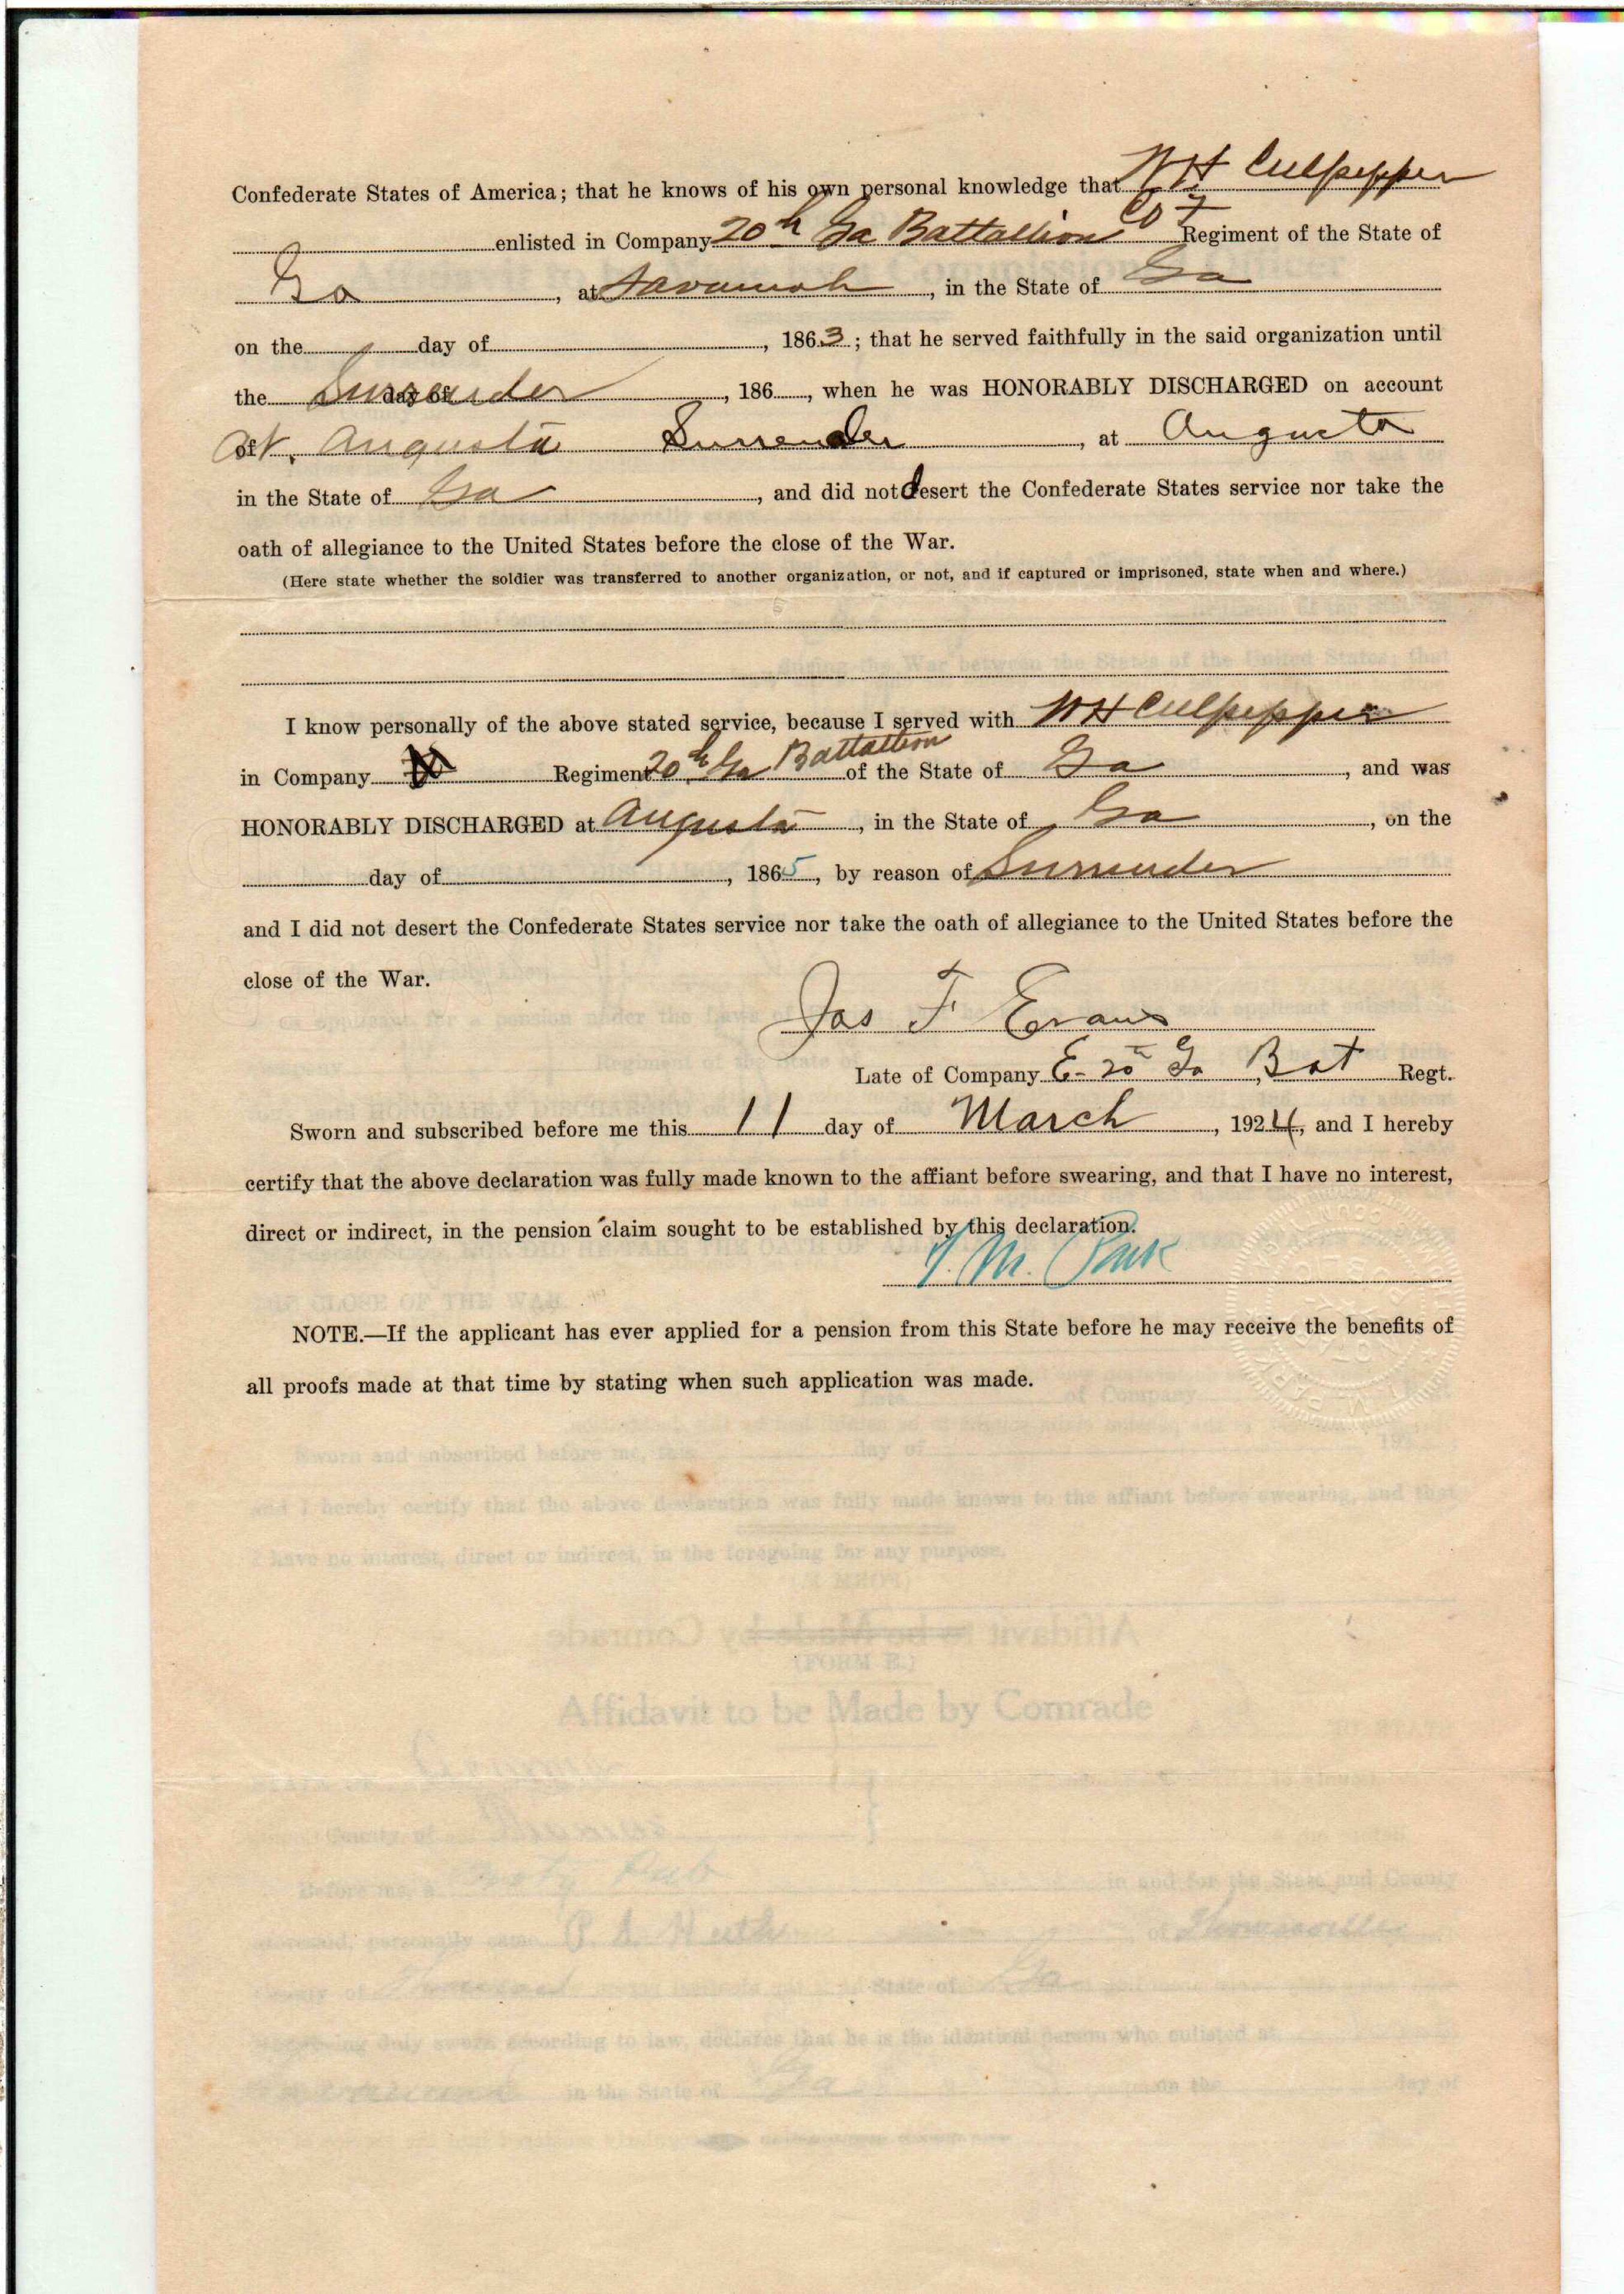 Confederate States of America; that he knows of his own personal knowledge that W H Culpepper
enlisted in Company 20th Ga Battallion Co F Regiment of the State of
Ga, at Savannah, in the State of Ga
on the day of, 1863; that he served faithfully in the said organization until
the Surrender day of, 186, when he was HONORABLY DISCHARGED on account
of At. Augusta Surrender, at Augusta
in the State of Ga, and did not desert the Confederate States service nor take the
oath of allegiance to the United States before the close of the War.
(Here state whether the soldier was transferred to another organization, or not, and if captured or imprisoned, state when and where.)
I know personally of the above stated service, because I served with W H Culpepper
in Company Regiment 20th Ga Battallion of the State of Ga, and was
HONORABLY DISCHARGED at Augusta, in the State of Ga, on the
day of, 1865, by reason of Surrender
and I did not desert the Confederate States service nor take the oath of allegiance to the United States before the
close of the War.
Jas F Evans
Late of Company E - 20 Ga Bat Regt.
Sworn and subscribed before me this 11 day of March, 1924, and I hereby
certify that the above declaration was fully made known to the affiant before swearing, and that I have no interest,
direct or indirect, in the pension claim sought to be established by this declaration.
M. Park
NOTE.—If the applicant has ever applied for a pension from this State before he may receive the benefits of
all proofs made at that time by stating when such application was made.
of Company
Sworn and subscribed before me, this day of 19
and I hereby certify that the above declaration was fully made known to the affiant before swearing, and that
I have no interest, direct or indirect, in the foregoing for any purpose.
(FORM E.)
Affidavit to be Made by Comrade
County of
Before me, a in and for the State and County
aforesaid, personally came of Thomasville
County of State of Ga
being duly sworn according to law, declares that he is the identical person who enlisted at
in the State of Ga on the day of